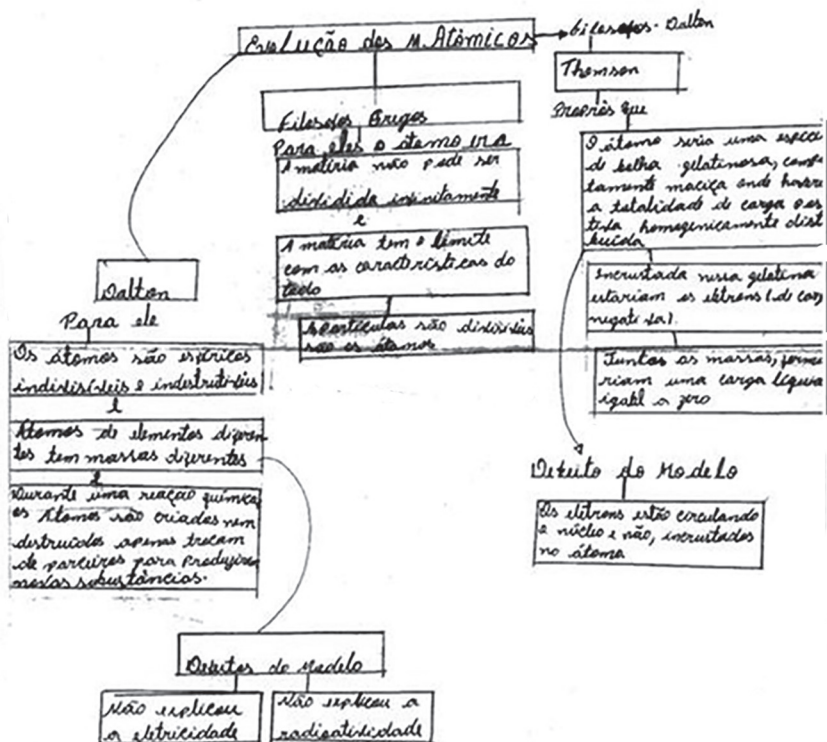 Evolução dos M. Atômicos
Filosofos - Dalton
Thomson
Propôs que
O átomo seria uma espéci
de bolha gelatinosa, comple
tamente maciça onde haver
a totalidade de carga posi
tiva homogenicamente dist
buída
Incrustada nessa gelatina
estariam os elétrons (de car
negativa).
Juntas as massas, forne
riam uma carga líquida
igual a zero
Defeito do Modelo
Os elétrons estão circulando
o núcleo e não, incrustados
no átomo
Filosofos Gregos
Para eles o átomo era
A matéria não pode ser
dividida infinitamente
e
A matéria tem o limite
com as características do
todo
As partículas são
são os átomos
Dalton
Para ele
Os átomos são esféricos
indivisíveis e indestrutíveis
e
Átomos de elementos diferen
tes tem massas diferentes
e
Durante uma reação química,
os átomos são criados nem
destruídos apenas trocam
de parceiros para produzirem
novas substâncias.
Defeitos do Modelo
Não explicou
a eletricidade
Não explicou a
radioatividade